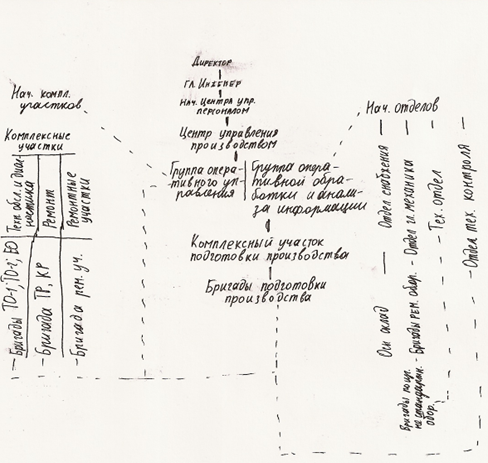 Директор
Гл. Инженер
Нач. Центра упр.
персоналом
Центр управления
производством
Группа опера-
тивного уп-
равления
Группа опера-
тивной обра-
ботки и анали-
за информации
Комплексный участок
подготовки производства
Бригады подготовки
производства
Нач. компл.
участков
Комплексные
участки
Техн. обсл. и диаг-
ностика
Ремонт
Ремонтные
участки
Бригады ТО-1; ТО-2; ЕО
Бригада ТР, КР
Бригада рем. уч.
Нач. отделов
Отдел снабжения
Отдел гл. механика
Тех. отдел
Отдел тех. контроля
Осн склад
Бригады рем. обор.
Бригады по
обор.